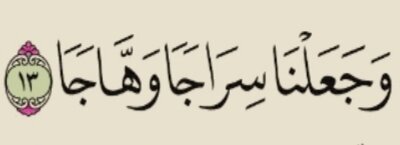 وَجَعَلْنَا سِرَاجًا وَهَّاجًا ١٣